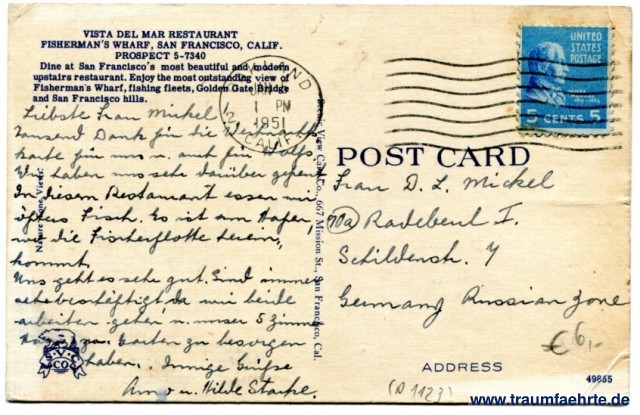 VISTA DEL MAR RESTAURANT
FISHERMAN'S WHARF, SAN FRANCISCO, CALIF.
PROSPECT 5-7340
Dine at San Francisco's most beautiful and modern
upstairs restaurant. Enjoy the most outstanding view of
Fisherman's Wharf, fishing fleets, Golden Gate Bridge
and San Francisco hills.
Liebste Frau Mickel!
Tausend Dank für die Weihnachts
karte für uns u. auch für Wolfs.
Wir haben uns sehr darüber gefreut
In diesem Restaurant essen wir
öfters Fisch. Es ist am Hafen,
wo die Fischerflotte herein
kommt.
Uns geht es sehr gut. Sind immer
sehr beschäftigt da wir beide
arbeiten gehen u. unser 5 Zimmer
Garten zu besorgen
haben. Innige Grüße
u. Hilde Starke.
S.V.C.
CO
Nature Tone Views
View Card Co., 667 Mission St., San Francisco, Cal.
OAKLAND
1 PM
1951
CALIF.
UNITED
STATES
POSTAGE
5 CENTS 5
POST CARD
Frau D. L. Mickel
10a Radebeul I.
Schilderstr. 7
Germany Russian Zone
€ 6,-
ADDRESS
49855
(D 1123)
www.traumfaehrte.de